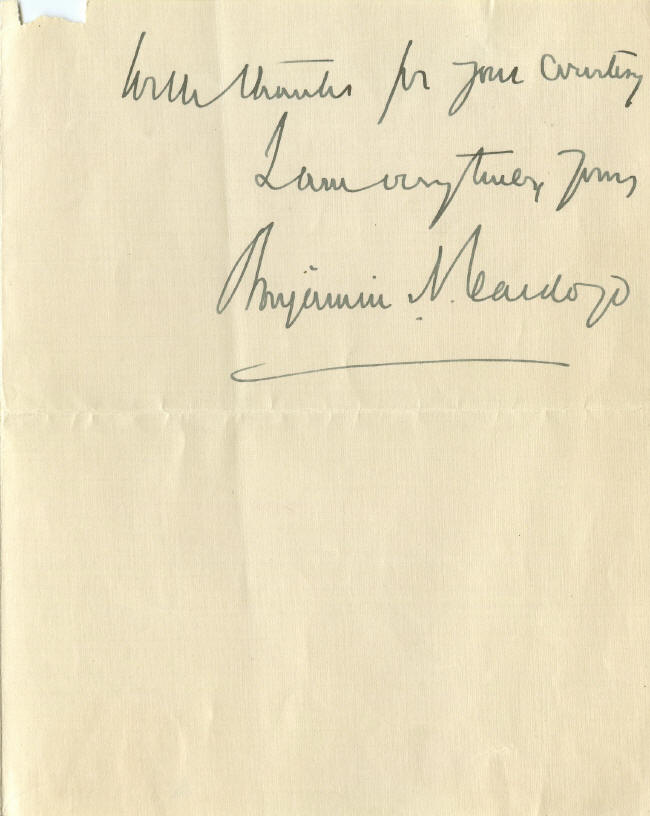 With thanks for your courtesy
I am very truly yours
Benjamin N. Cardozo